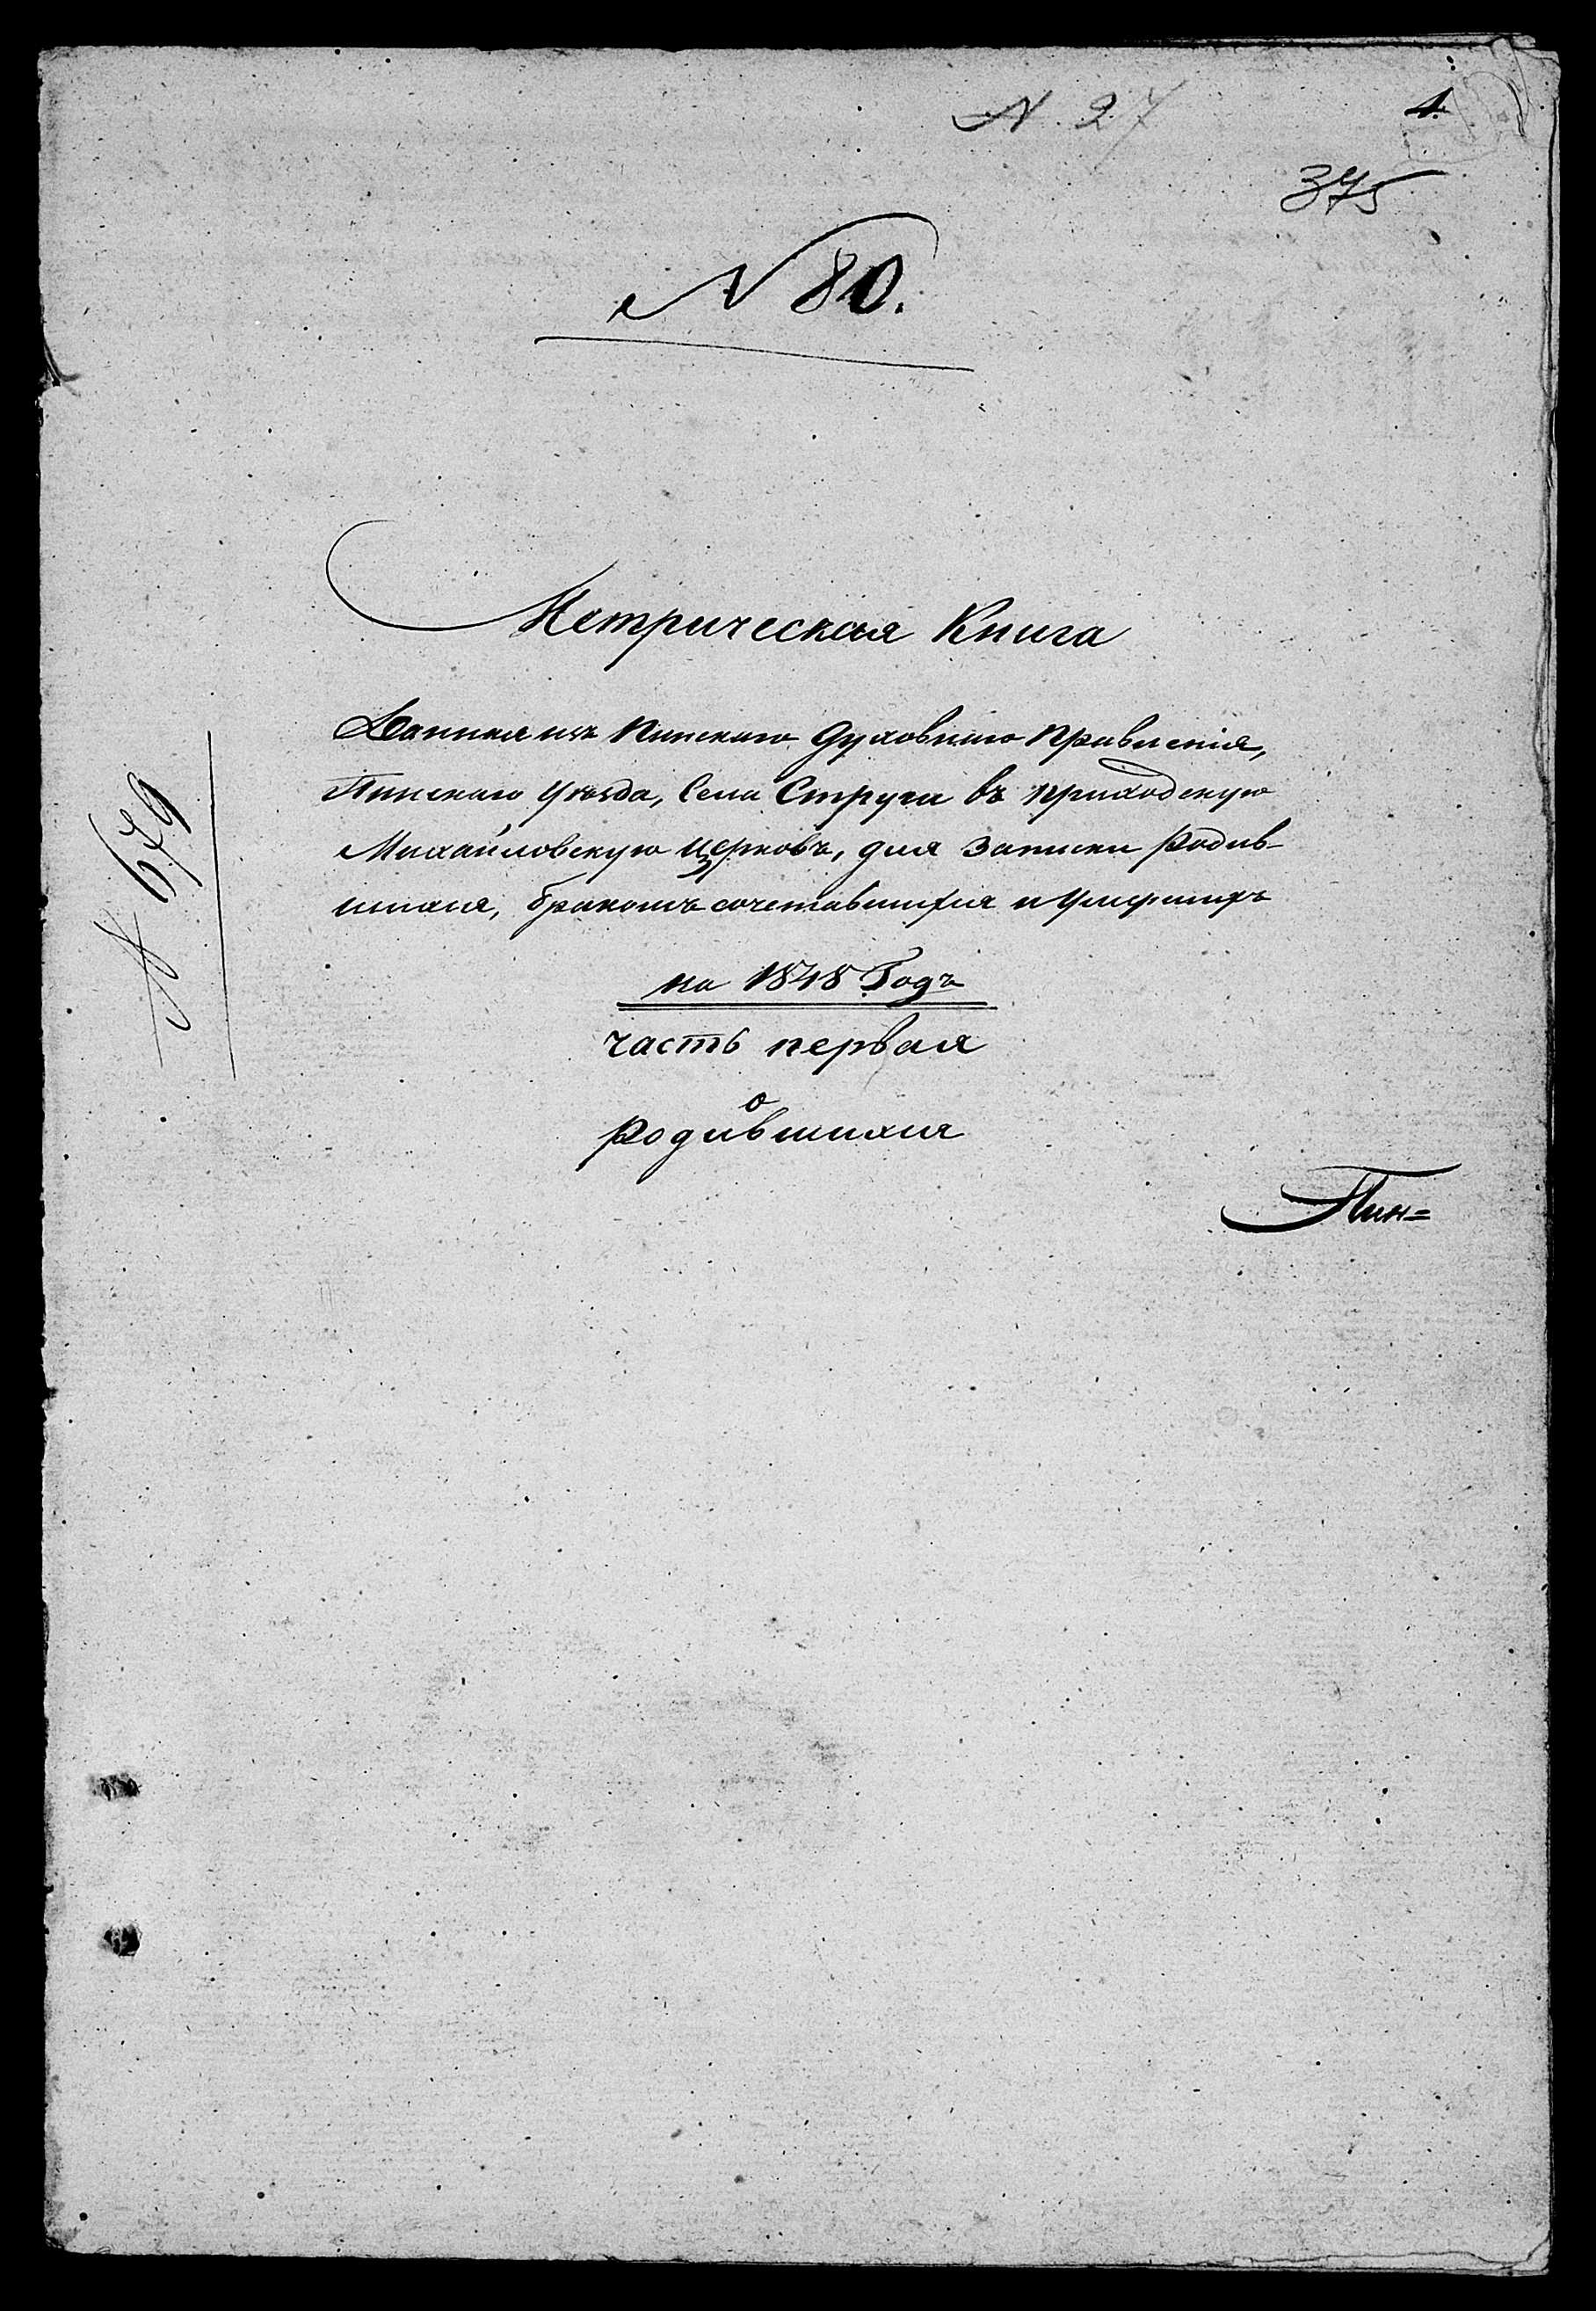 N. 27
1.
375
N 80.
Метрическая Книга
Данная изъ Пинскаго Духовнаго Правленія,
Пинскаго Уѣзда, Села Струги въ приходскую
Михайловскую церковь, для записки родив-
шихся, бракомъ сочетавшихся и умершихъ
на 1848 Годъ
часть первая
о
родившихся
Пин=
N 679